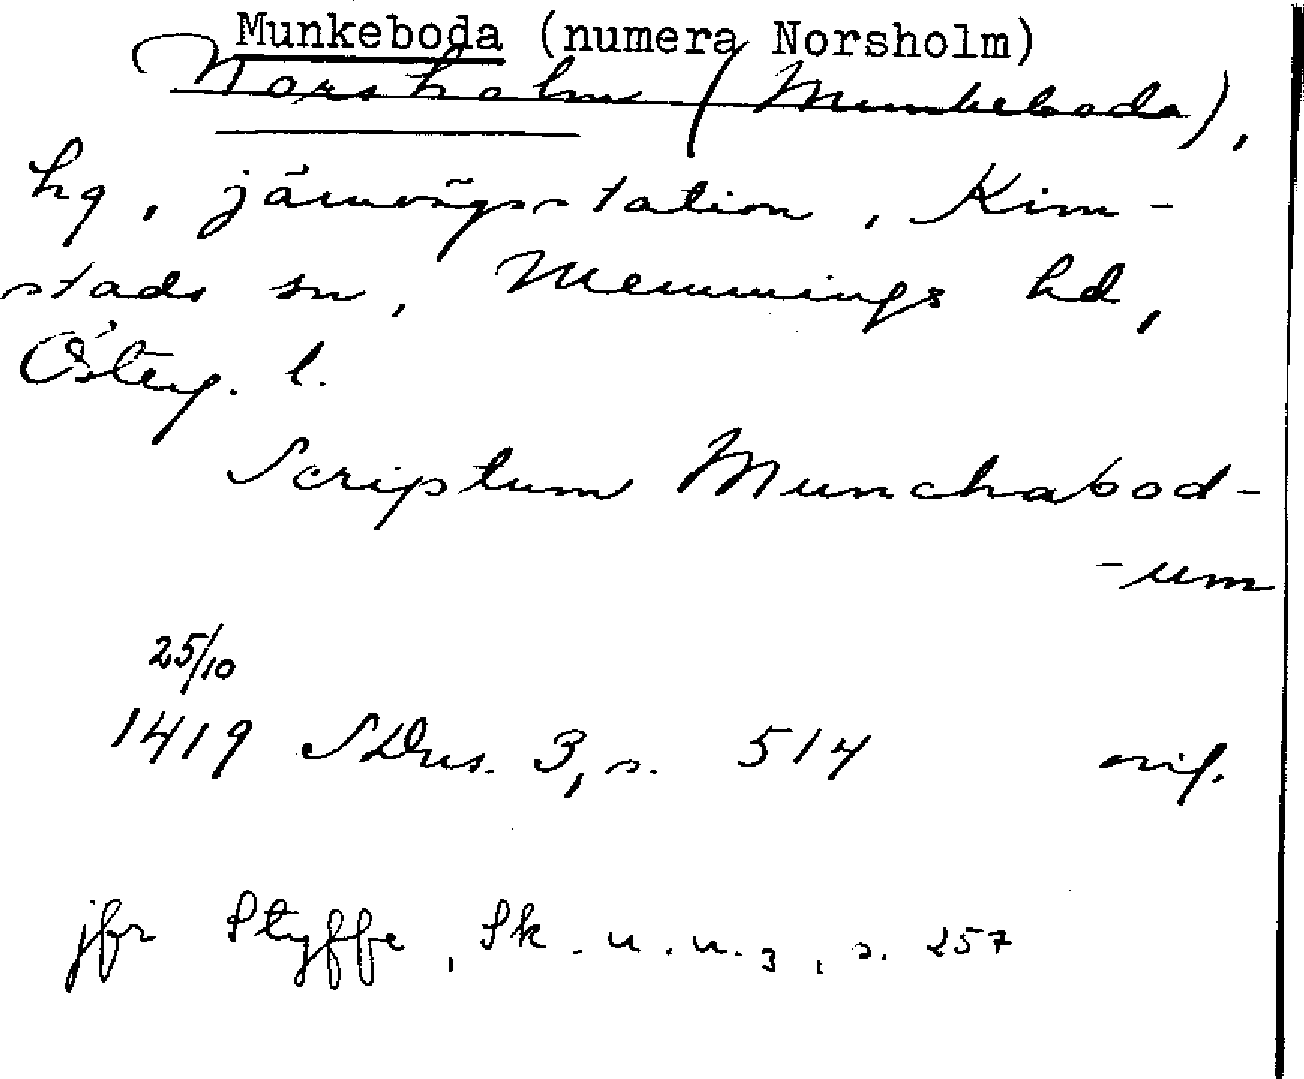 Munkeboda (numera Norsholm)
Norsholm (Munkeboda),
hg, järnvägsstation, Kim-
stads sn, Memmings hd,
Österg. l.
Scriptum Munchabod-
-um
25/10
1419 SDns. 3, s. 514 orig.
jfr Styffe, Sk. u. u. 3, s. 257